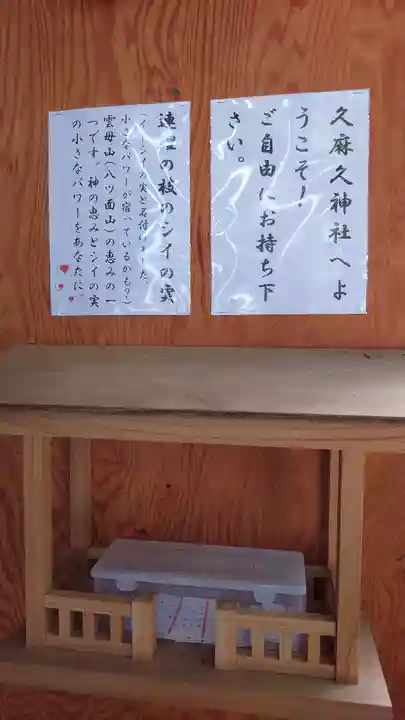 久麻久神社へよ
うこそ！
ご自由にお持ち下
さい。
連理の枝のシイの実
小さなパワーが宿っているかも？）
雲母山（八ツ面山）の恵みの一
つです。神の恵みとシイの実
の小さなパワーをあなたに。